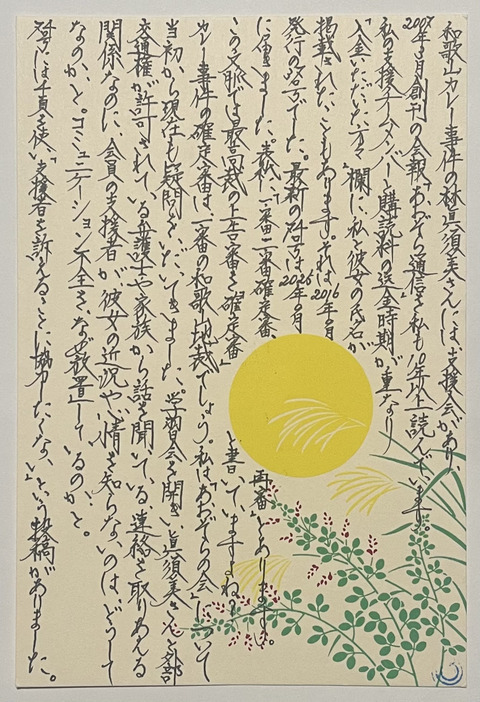 和歌山カレー事件の林眞須美さんには、支援会があり、
年 月創刊の会報「あおぞら通信」を私も10年以上読んでいます。
私の支援 メンバーと購読料の送金時期が重なり
「入金いただいた方々」欄に、私と彼女の氏名が
掲載されたこともあります。それは2016年 月
発行の 号でした。最新の 号は2026年 月
に届きました。表紙に、「一審二審確定審、再審」とあります。
この文脈では最高裁の上告審を「確定審」と書いていますよね?
カレー事件の確定審は、一審の和歌山地裁でしょう。私は「あおぞらの会」について
当初から現在も疑問をいだいてきました。学習会を開き、眞須美さんと外部
交通権が許可されている弁護士や家族から話を聞いている、連絡を取りあえる
関係なのに、会員の支援者が彼女の近況や心情を知らないのは、どうして
なのかと。コミュニケイション不全を、なぜ放置しているのかと。
号には、「 支援者を訴えることに協力したくない」という投稿がありました。